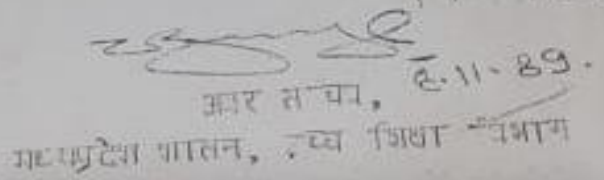 ८.11-89.
अवर सचिव,
मध्यप्रदेश शासन, उच्च शिक्षा विभाग